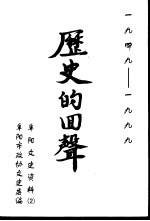 一九四九——一九九九
歷史的回聲
阜阳文史资料(2)
阜阳市政协文史委编